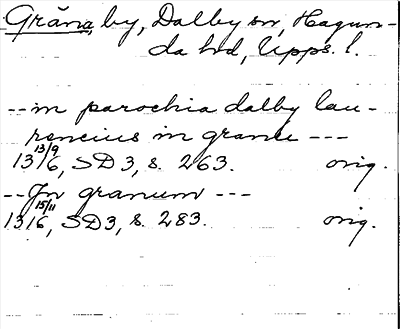 Gråna, by, Dalby sn, Hagun-
da hd, Upps. l.
--in parochia dalby lau-
rencius in granu ---
13 13/9 16, SD 3, s. 263. orig.
--Jn granum ---
13 15/11 16, SD 3, s. 283. orig.